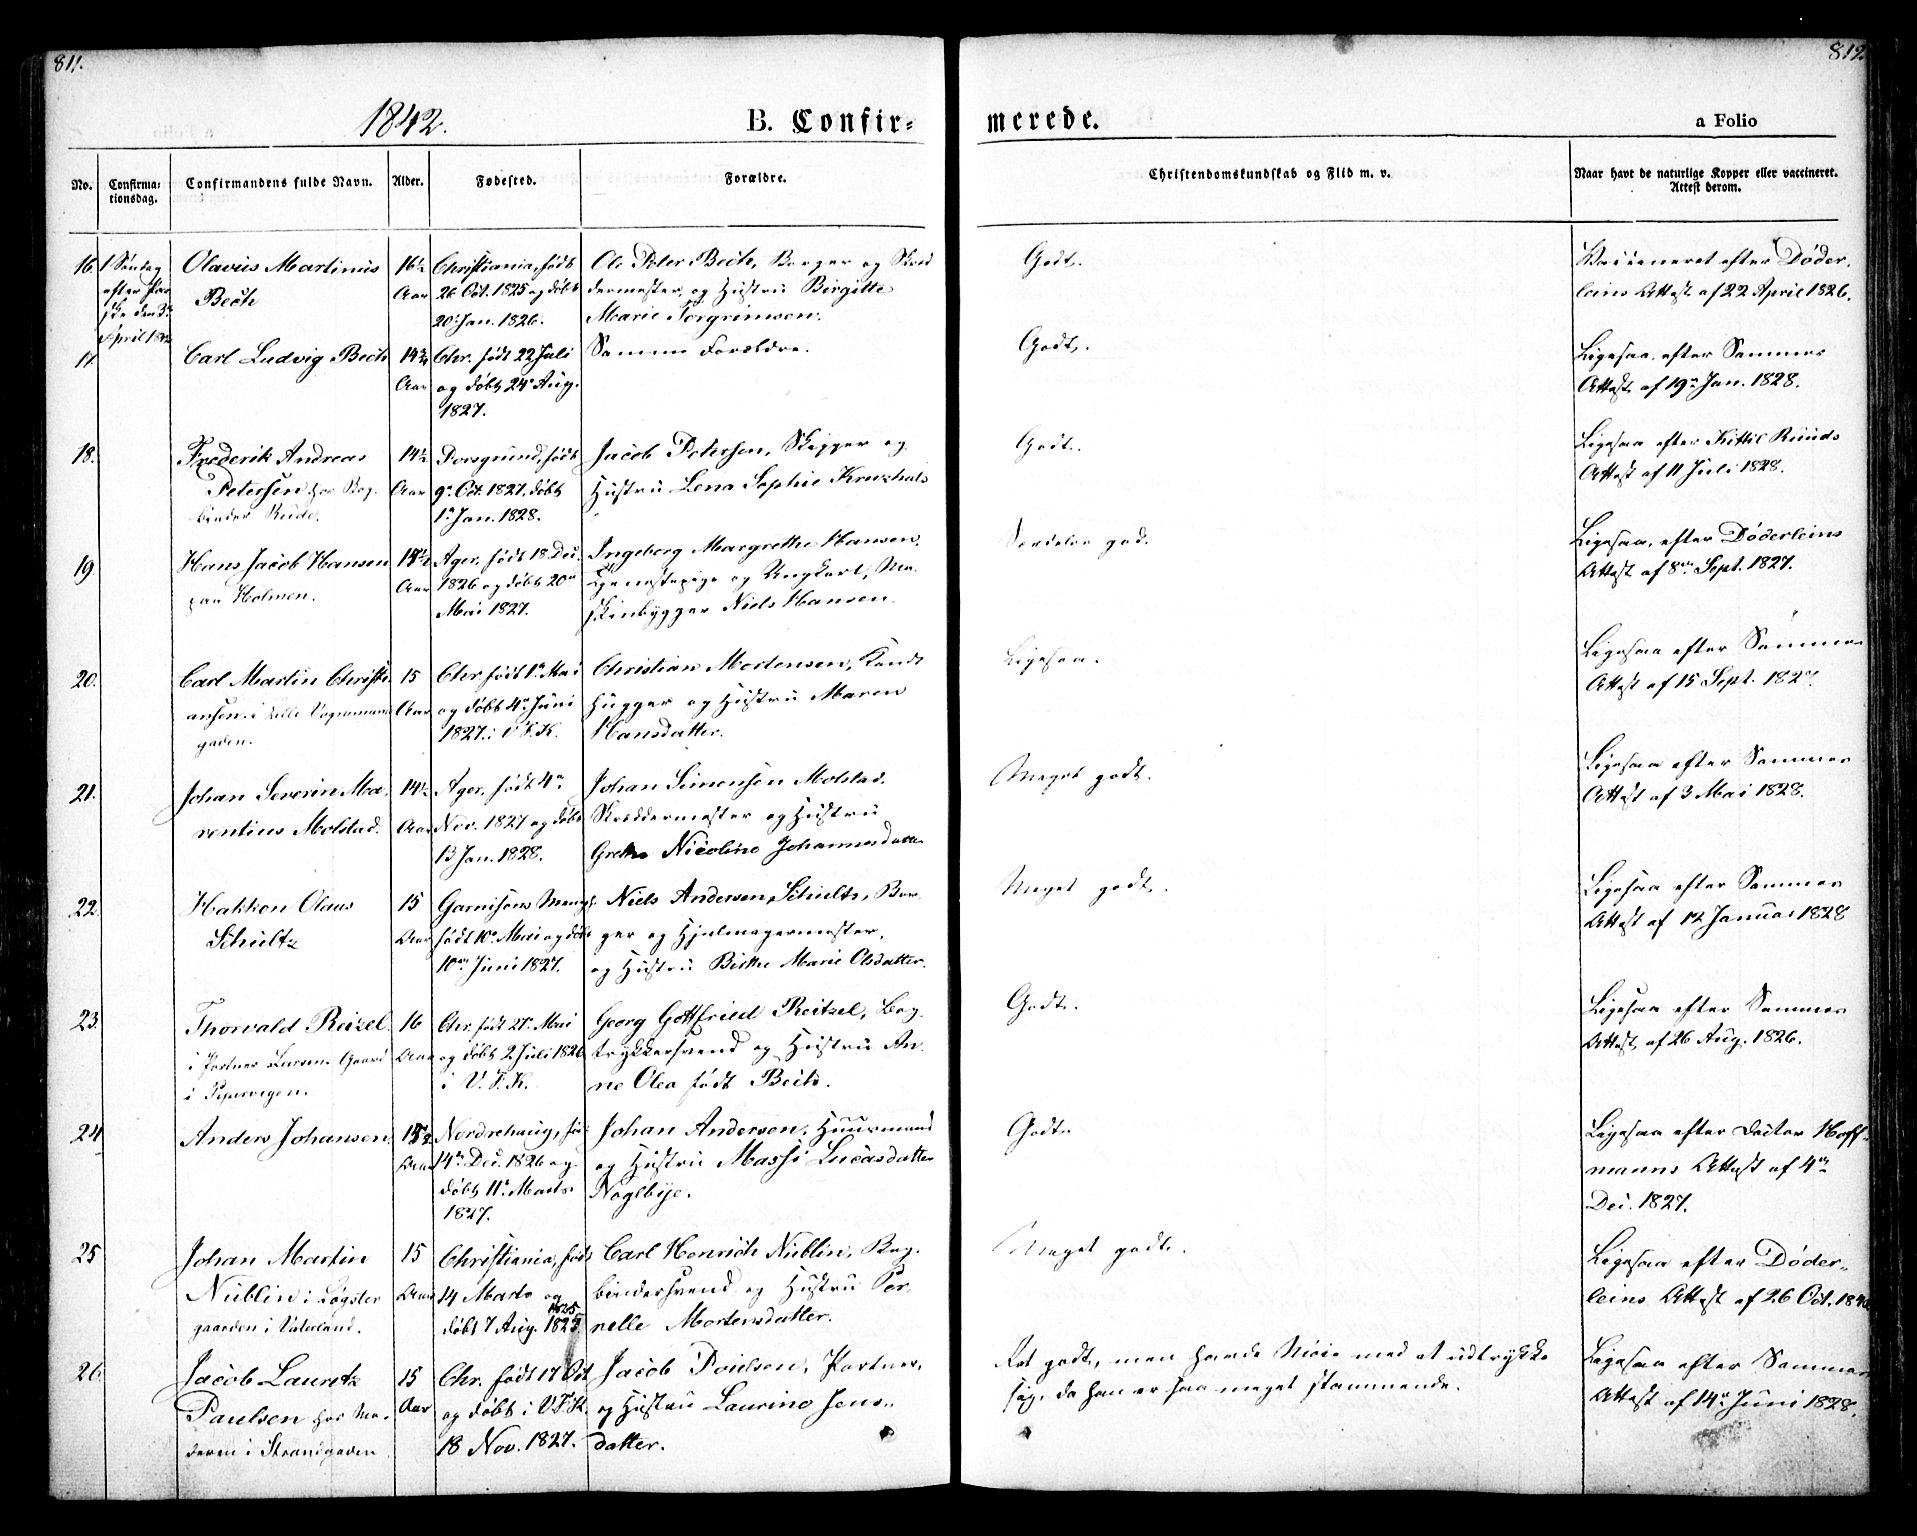 811.
812
1842.
B. Confir-
merede.
a Folio
No.
Confirma-
tionsdag.
Confirmandens fulde Navn.
Alder.
Fødested.
Forældre.
Christendomskundskab og Flid m. v.
Naar havt de naturlige Kopper eller vaccineret.
Attest derom.
16.
1 Søndag
efter Paa
ske den 3
April 1842
Olavus Martinus
Bech
16½
Aar
Christiania, født
26 Oct. 1825 og døbt
20 Jan. 1826.
Ole Peter Bech, Borger og Skræd
dermester, og Hustru Birgitte
Marie Torgrimsen.
Godt.
Vaccineret efter Døder-
leins Attest af 22 April 1826.
17.
Carl Ludvig Bech
14¾
Aar
Chr. født 22 Juli
og døbt 24 Aug.
1827.
Samme Forældre.
Godt.
Ligesaa, efter Sammes
Attest af 19 Jan. 1828.
18.
Frederik Andreas
Petersen hos Bog-
binder Rude.
14½
Aar
Porsgrund, født
9 Oct. 1827, døbt
1 Jan. 1828.
Jacob Petersen, Skipper og
Hustru Lena Sophie
Godt.
Ligesaa efter Kittil Ruuds
Attest af 11 Juli 1828.
19
Hans Jacob Hansen
paa Holmen.
15½
Aar
Ager, født 18 Dec.
1826 og døbt 20
Mai 1827.
Ingeborg Margrethe Hansen,
Tjenestepige og Ungkarl, Ma-
skinbygger Niels Hansen.
Særdeles god.
Ligesaa, efter Døderleins
Attest af 8 Sept. 1827.
20.
Carl Martin Christi-
ansen. i Lille Vognmand
gaden.
15
Aar
Chr født 1 Mai
og døbt 4 Juni
1827. i V. F. K.
Christian Mortensen,
hugger og Hustru Maren
Hansdatter.
Ligesaa.
Ligesaa efter Sammes
Attest af 15 Sept. 1827.
21.
Johan Severin Ma-
rentius Molstad.
14½
Aar
Ager, født 4
Nov. 1827 og døbt
13 Jan. 1828.
Johan Simensen Molstad.
Skræddermester og Hustru
Grethe Nicoline Johannesdatter
Meget godt.
Ligesaa efter Sammes
Attest af 3 Mai 1828.
22.
Hakkon Olaus
Schultz
15
Aar
Garnisons Menigh.
født 10 Mai og døbt
10 Juni 1827.
Niels Andersen Schultz, Bor-
ger og Hjulmagermester,
og Hustru Birthe Marie Olsdatter.
Meget godt.
Ligesaa efter Sammes
Attest af 12 Januar 1828
23.
Thorvald Reizel
i Portner Larsens Gaard
i Pipervigen.
16
Aar
Chr. født 27 Mai
og døbt 2 Juli 1826
i V. F. K.
Georg Gottfried Reitzel, Bog-
trykkersvend og Hustru An-
ne Olea født Bech.
Godt.
Ligesaa efter Sammes
Attest af 26 Aug. 1826.
24
Anders Johansen
15½
Aar
Nordrehaug, født
14 Dec. 1826 og
døbt 11 Marts
1827.
Johan Andersen, Huusmand
og Hustru Massi Lucasdatter
Noglbye.
Godt.
Ligesaa efter Doctor Hoff-
manns Attest af 4
Dec. 1827.
25
Johan Martin
Nublin i Løgster
gaarden i Vaterland.
15
Aar
Christiania, født
14 Marts og
døbt 7 Aug. 1825.
Carl Henrich Nublin, Bog-
bindersvend og Hustru Per-
nelle Mortensdatter.
Meget godt.
Ligesaa efter Døder-
leins Attest af 26 Oct.
26.
Jacob Lauretz
Paulsen hos Mo-
deren i Strandgaden
15
Aar
Chr. født 17 Oct
og døbt i V. F. K.
18 Nov. 1827.
Jacob Poulsen, Portner,
og Hustru Laurine Jens-
datter.
Ret godt, men havde Møie med at udtrykke
sig, da han er saa meget stammende.
Ligesaa efter Sammes
Attest af 14 Juni 1828.